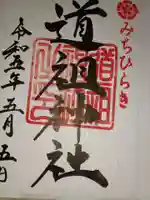 みちひらき
道祖神社
令和五年五月五日